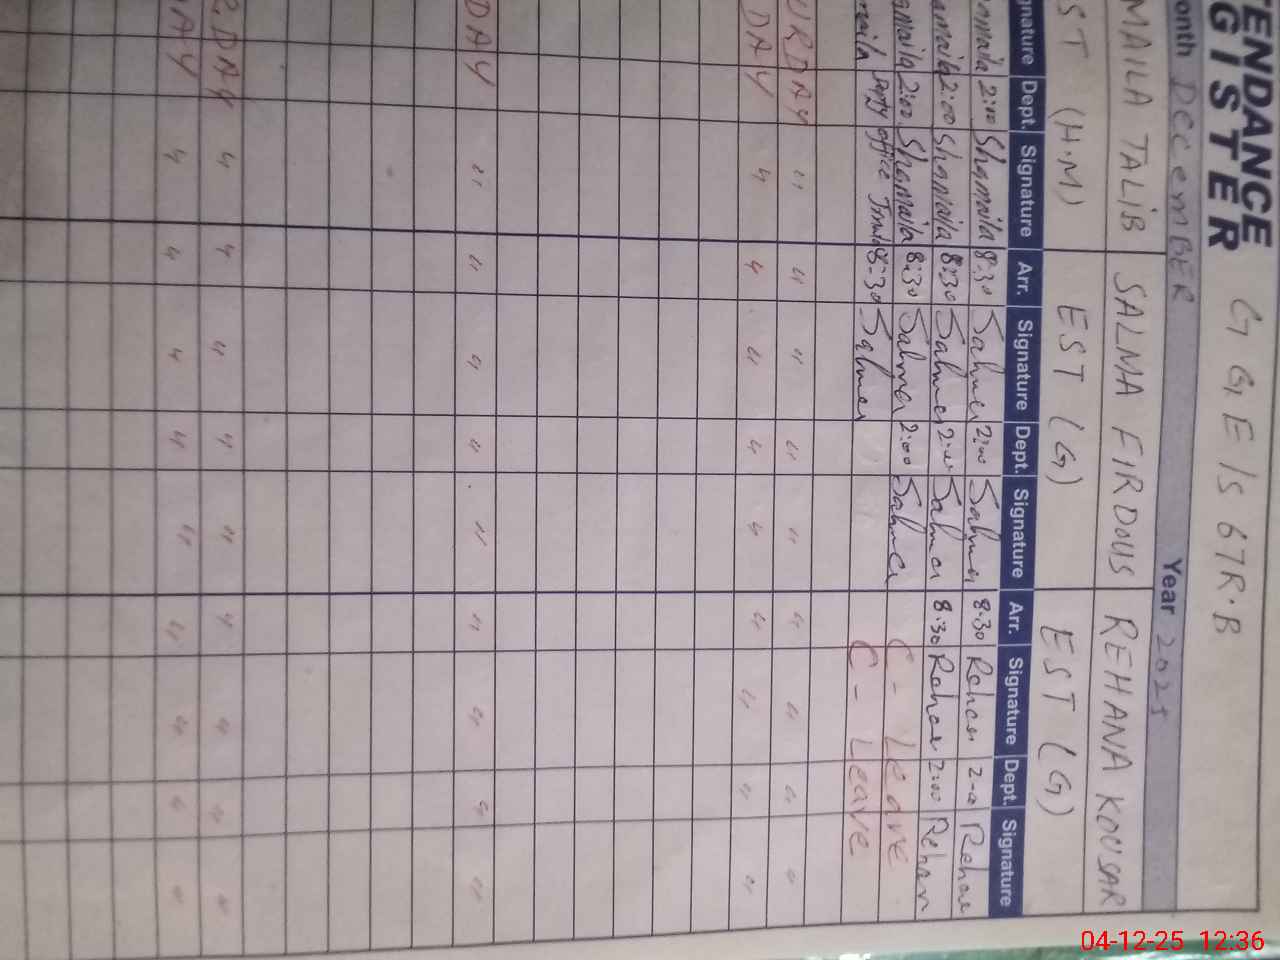 TENDANCE
GISTER
G GE/S 67R.B
onth DecemBER Year 2025
MAILA TALIB SALMA FIRDOUS REHANA KOUSAR
ST (H.M) EST (G) EST (G)
gnature Dept. Signature Arr. Signature Dept. Signature Arr. Signature Dept. Signature
2:00 Shamaila 8:30 Salma 2:00 Salma 8.30 Rehan 2-0 Rehan
amaila 2:00 Shamaila 8:30 Salma 2:00 Salma 8.30 Rehan 2:00 Rehan
amaila 2:00 Shamaila 8:30 Salma 2:00 Salma C - Leave
maila office 8:30 Salma C - Leave
URDAY " " " " " " " " "
DAY " " " " " " " " "
DAY " " " " " " " " "
RDAY " " " " " " " " "
DAY " " " " " " " " "
04-12-25 12:36